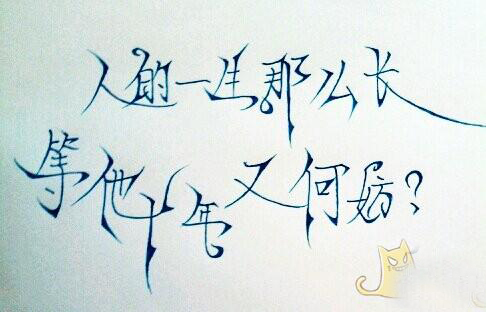 人的一生那么长
等他十年又何妨？